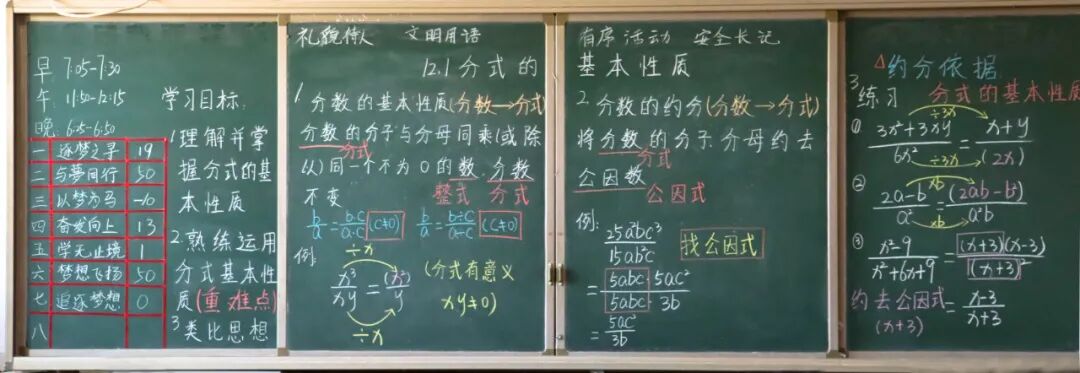 早 7:05-7:30
午 11:50-12:15
晚: 6:45-6:50
一 逐梦之寻 19
二 与夢同行 50
三 以梦为马 -10
四 奋发向上 13
五 学无止境 1
六 梦想飞扬 50
七 追逐梦想 0
八
学习目标:
1.理解并掌
握分式的基
本性质
2.熟练运用
分式基本性
质(重难点)
3类比思想
礼貌待人 文明用语
12.1分式的
1.分数的基本性质(分数→分式)
分数的分子与分母同乘(或除
分式
以)同一个不为0的数.分数
整式 分式
不变
b/a=b·c/a·c (c≠0) b/a=b÷c/a÷c (c≠0)
例:
÷x
x³/xy=(x²)/y
÷x
(分式有意义
xy≠0)
有序活动 安全长记
基本性质
2.分数的约分(分数→分式)
将分数的分子.分母约去
分式
公因数
公因式
例:
25abc³/15ab²c
找公因式
=5abc·5ac²/5abc·3b
=5ac²/3b
△约分依据
分式的基本性质
3.练习
① 3x²+3xy/6x²=x+y/(2x)
÷3x
÷3x
② 2a-b/a²=(2ab-b²)/a²b
xb
xb
③ x²-9/x²+6x+9=(x+3)(x-3)/(x+3)²
约去公因式
(x+3)
=x-3/x+3